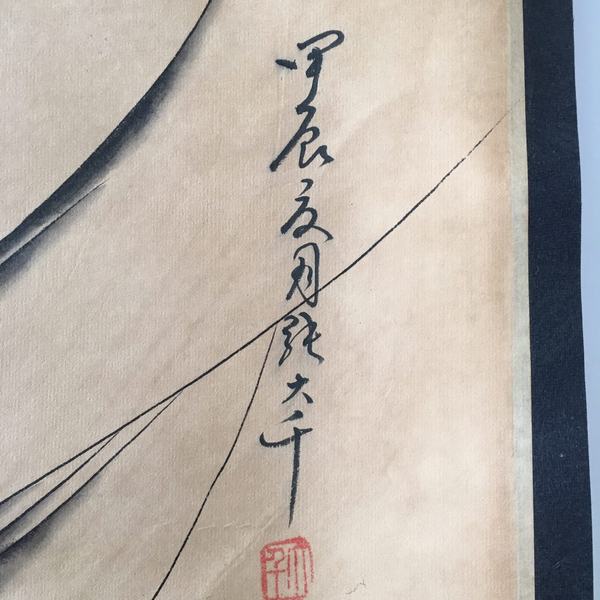 甲辰夏月張大千